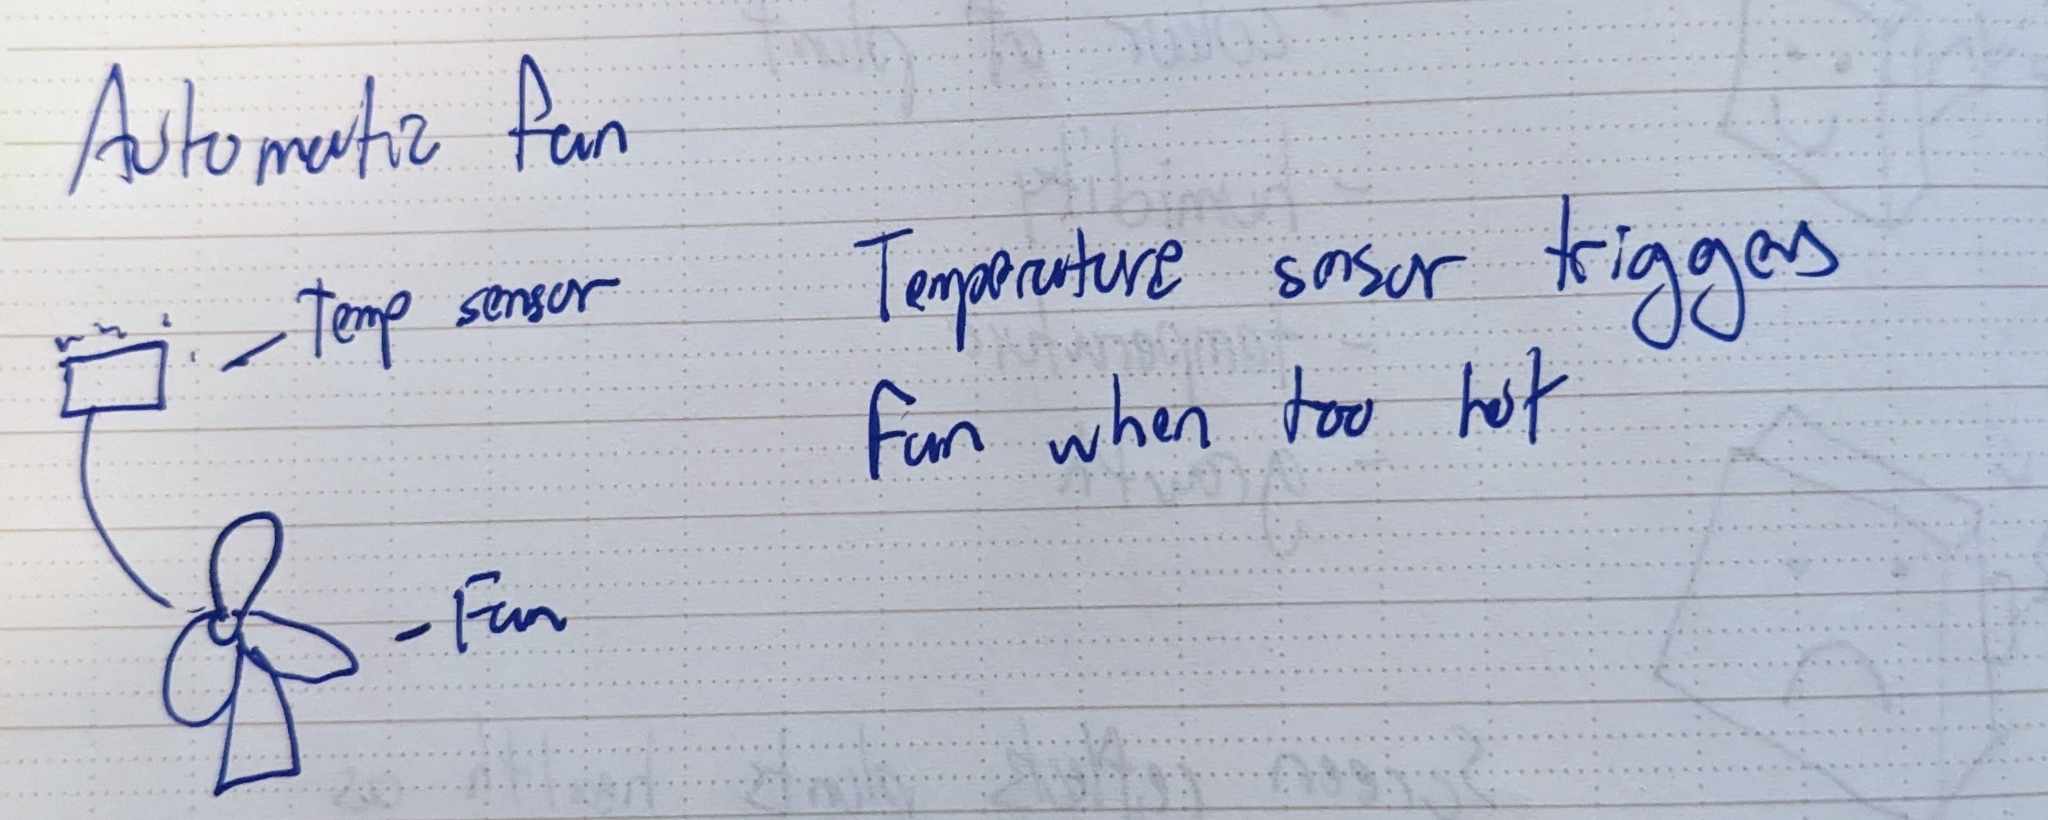 Automatic fan
- Temp sensor
Temperature sensor triggers
fan when too hot
- Fan